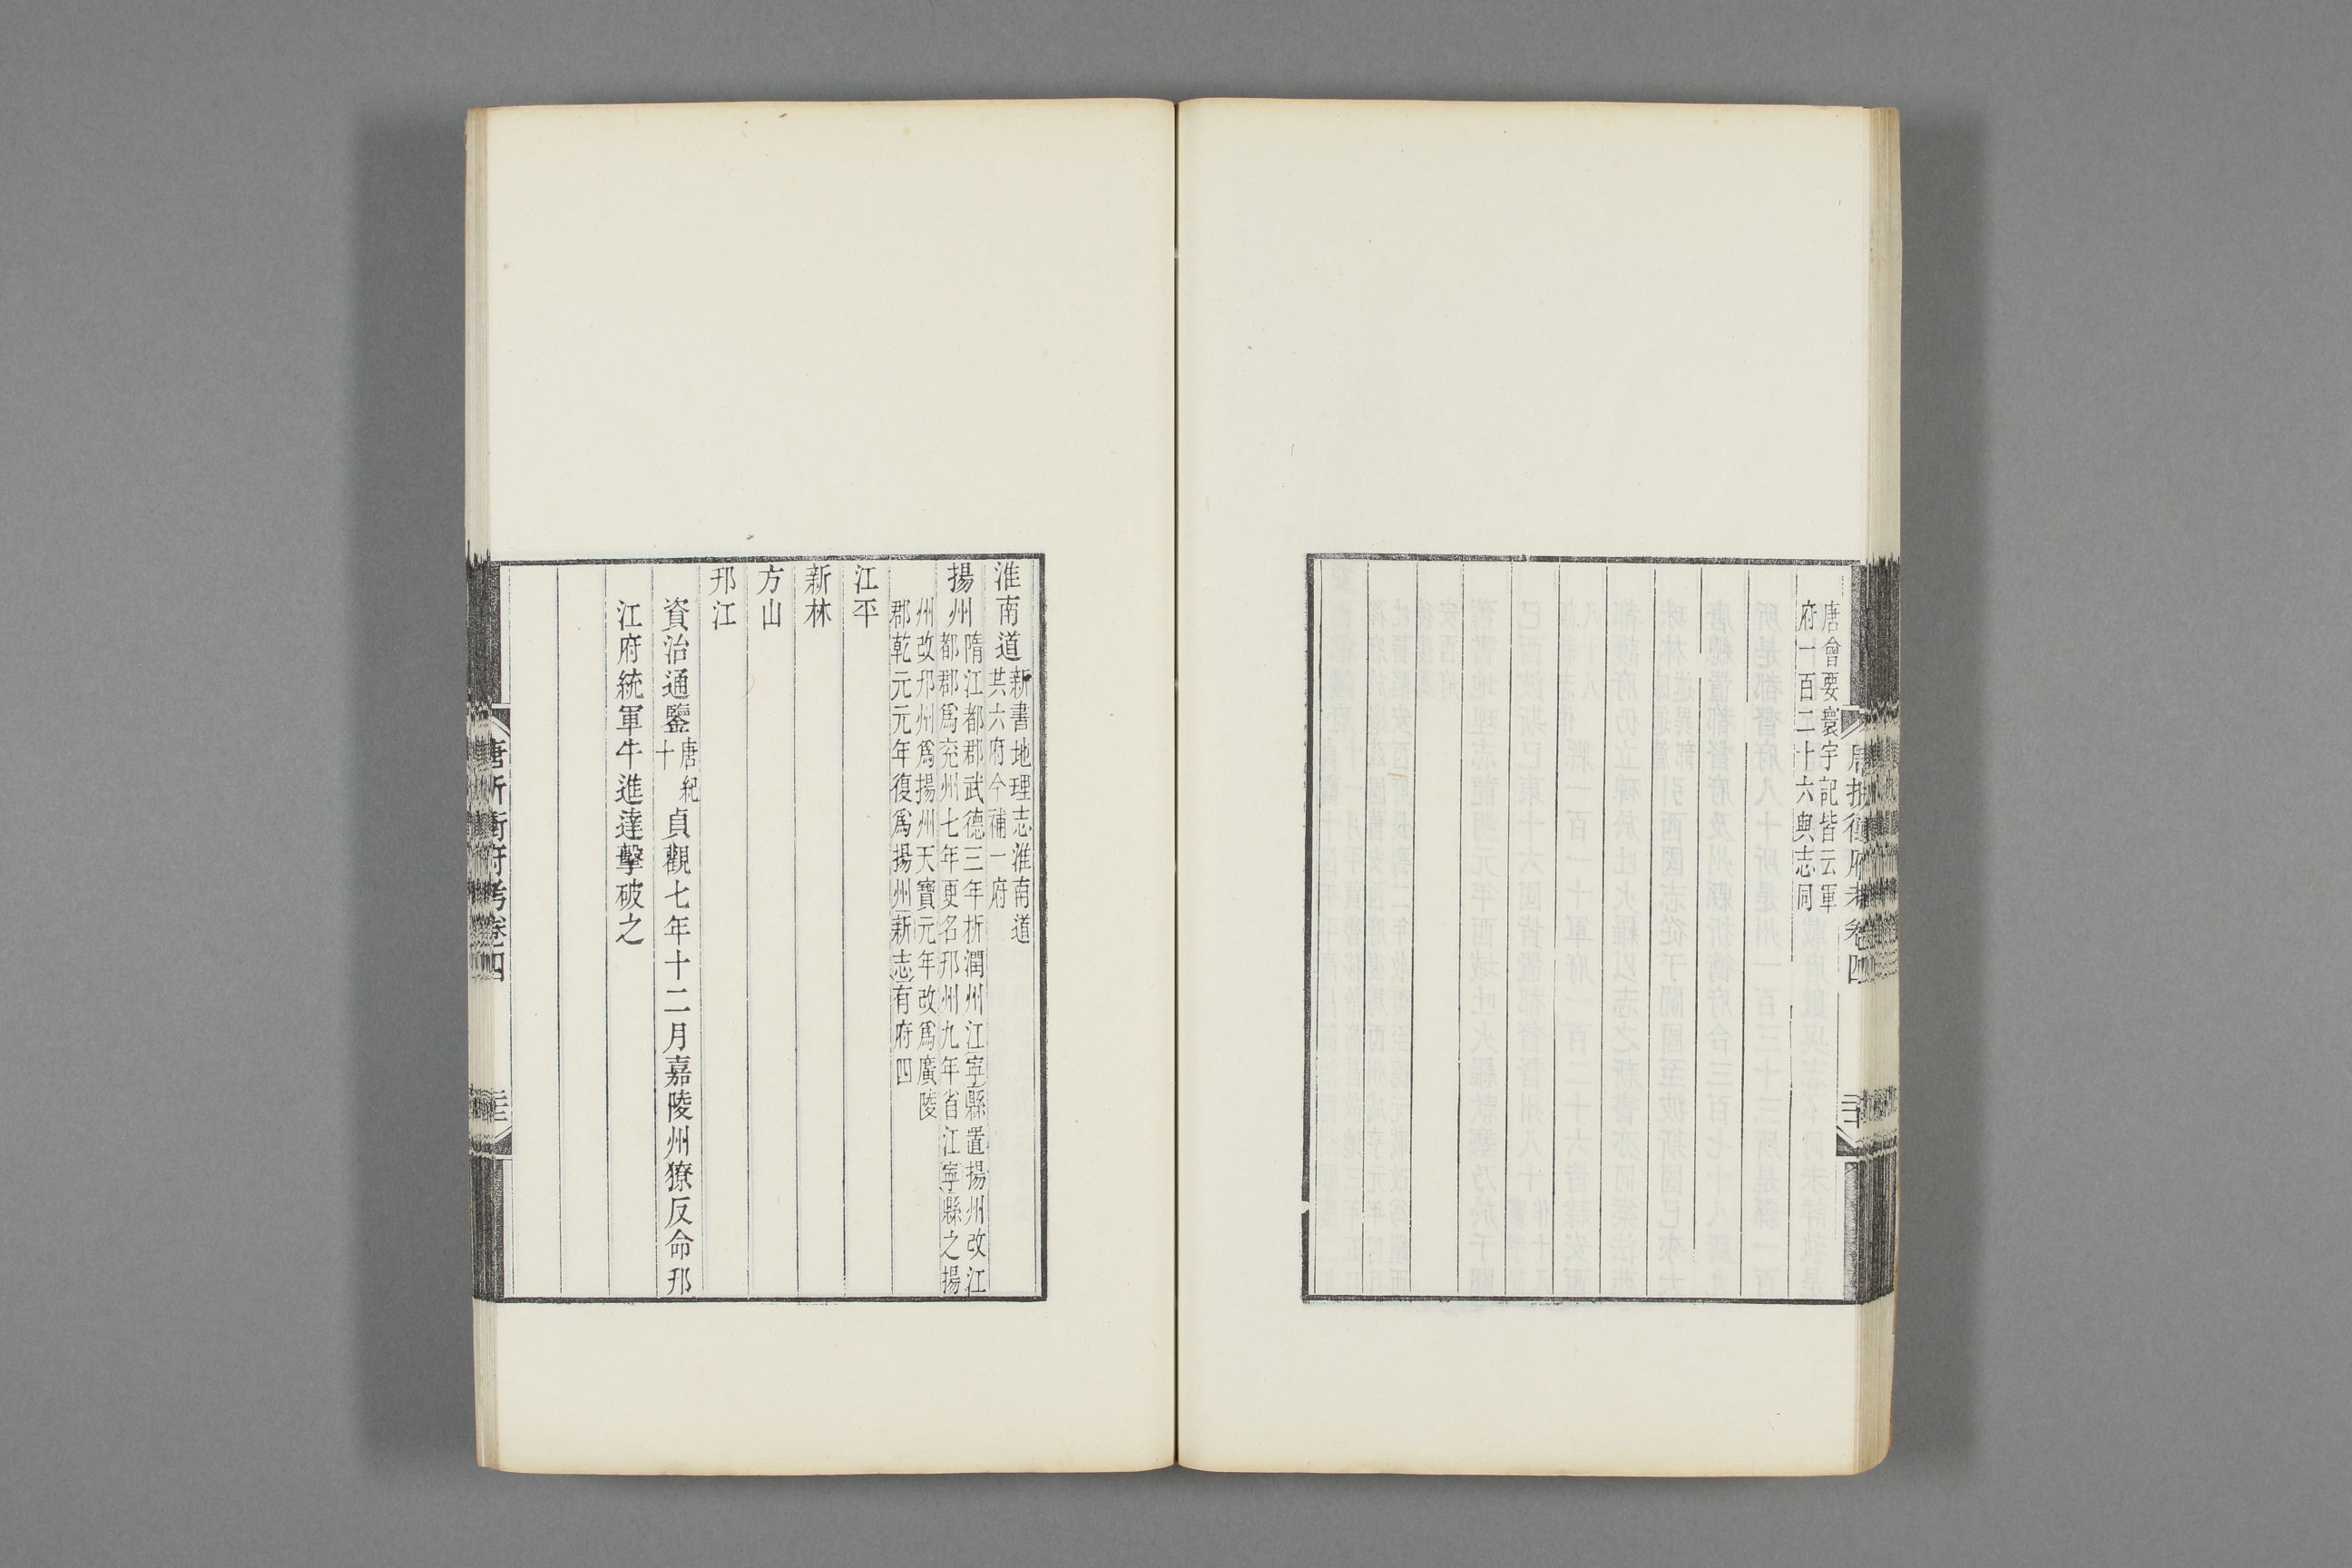 唐會要寰宇記皆云軍
府一百二十六與志同
唐折衝府考卷四
淮南道
新書地理志淮南道
共六府今補一府
揚州
隋江都郡武德三年析潤州江寧縣置揚州改江
都郡爲兗州七年更名邗州九年省江寧縣之揚
州改邗州爲揚州天寶元年改爲廣陵
郡乾元元年復爲揚州新志有府四
江平
新林
方山
邗江
資治通鑒唐紀十貞觀七年十二月嘉陵州獠反命邗
江府統軍牛進達擊破之
唐折衝府考卷四